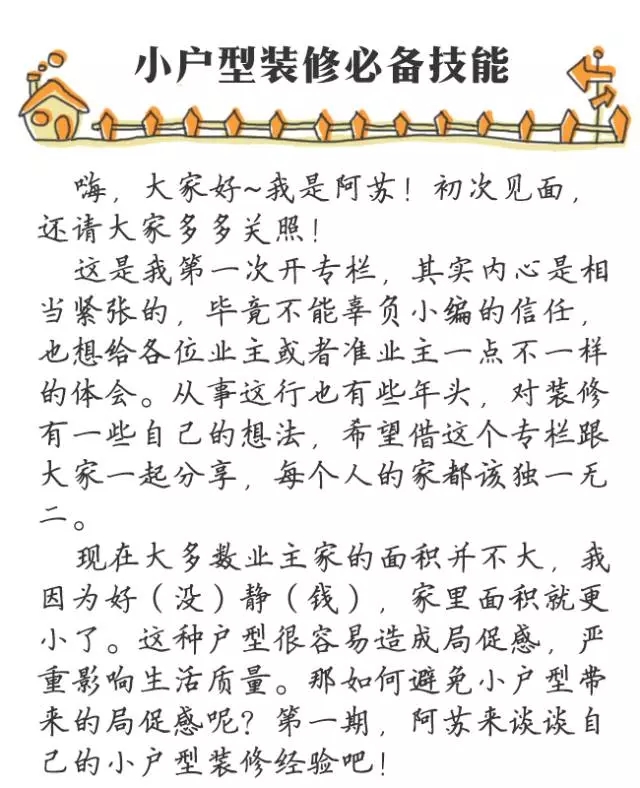 小户型装修必备技能
嗨，大家好~我是阿苏！初次见面，
还请大家多多关照！
这是我第一次开专栏，其实内心是相
当紧张的，毕竟不能辜负小编的信任，
也想给各位业主或者准业主一点不一样
的体会。从事这行也有些年头，对装修
有一些自己的想法，希望借这个专栏跟
大家一起分享，每个人的家都该独一无
二。
现在大多数业主家的面积并不大，我
因为好（没）静（钱），家里面积就更
小了。这种户型很容易造成局促感，严
重影响生活质量。那如何避免小户型带
来的局促感呢？第一期，阿苏来谈谈自
己的小户型装修经验吧！